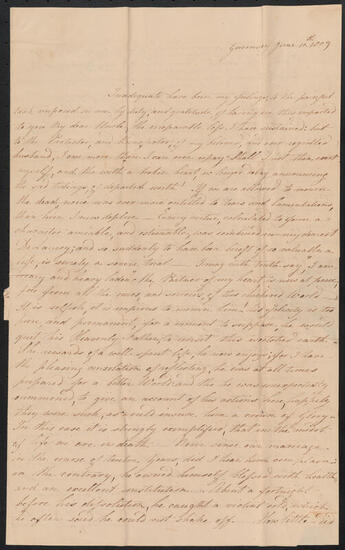 Guernsey June 10th 1809
Inadequate have been my feelings, to the painful
task imposed on me by duty, and gratitude, of having ere this imparted
to you My dear Uncle, the irreparable loss, I have sustained; but
to the Protector, and Benefactor, of my beloved, and ever regretted
husband, I owe more than I can ever repay. Shall I not then exert
myself, and tho with a broken heart no longer delay announcing
the sad tidings, of departed worth! If we are allowed to mourn
the dead, none was ever more entitled to tears and lamentations,
than him I now deplore — Every virtue, calculated to form a
character amiable, and estimable, was combined in my dearest
De Lancey; and so suddenly to have been bereft of so valuable a
life, is surely a source that I may with truth say, "I am
weary and heavy laden" the Partner of my heart is now at peace,
far from all the cares, and sorrows, of this wicked World —
It is selfish, it is impious to mourn him, his felicity is too
pure and permanent, for a moment to suppose, he would
quit his Heavenly Father, to revisit this wretched earth —
The rewards of a well spent life, he now enjoys; for I have
the pleasing consolation of reflecting, he was at all times
prepared for a better World, and tho he was unexpectedly
summoned, to give an account of his actions here, happily
they were such, as would ensure him a crown of Glory —
In this case it is strongly exemplified, that in the midst
of life we are in death — Never since our marriage
in the course of twelve years, did I than him ever
on the contrary, he owned himself blessed with health
and an excellent constitution — About a fortnight
before his dissolution, he caught a violent cold, which
he often said he could not shake off — How little did